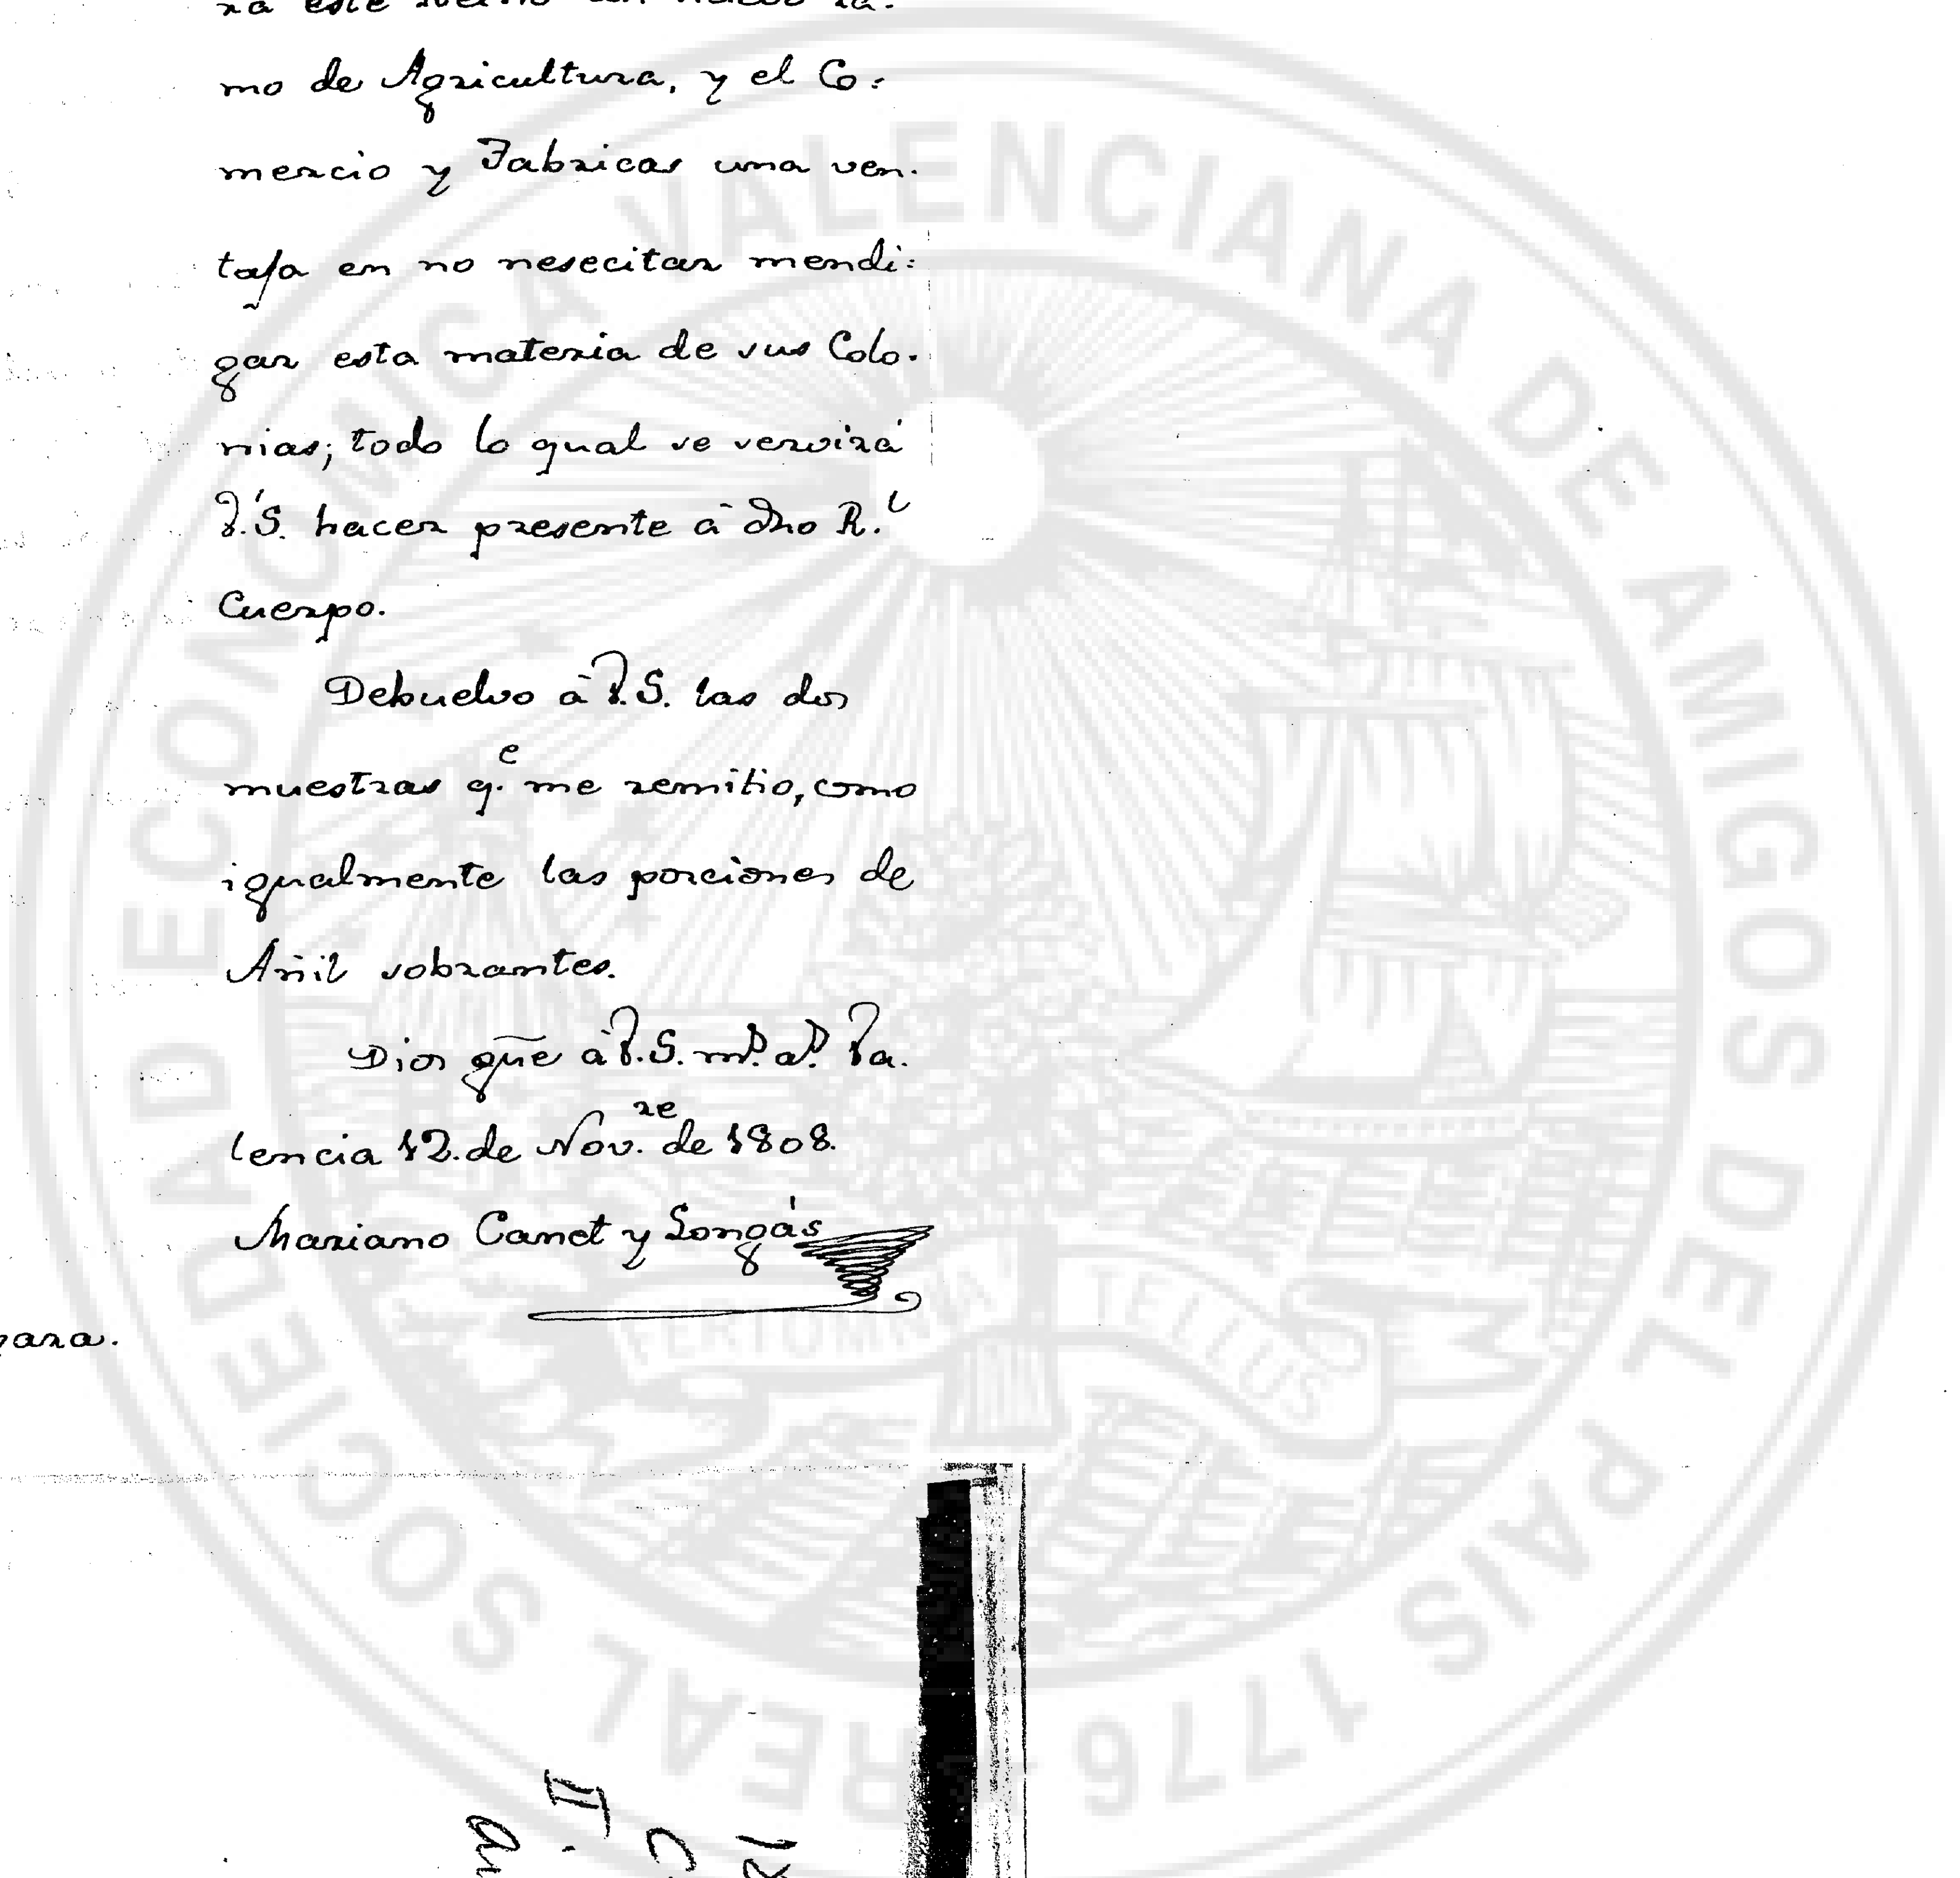 ra este Reino un nuevo ra-
mo de Agricultura, y el Co=
mercio y Fabricas una ven-
taja en no nesecitar mendi=
gar esta materia de sus Colo-
nias; todo lo qual se servirá
V.S. hacer presente â dho R.l
Cuerpo.
Debuelvo â V.S. las dos
muestras q.e me remitio, como
igualmente las porciones de
Añil sobrantes.
Dios gũe â V.S. m.s a.s Va-
lencia 12. de Nov.re de 1808.
Mariano Canet y Longás
REAL SOCIEDAD ECONOMICA VALENCIANA DE AMIGOS DEL PAIS 1776
TELLUS
II.